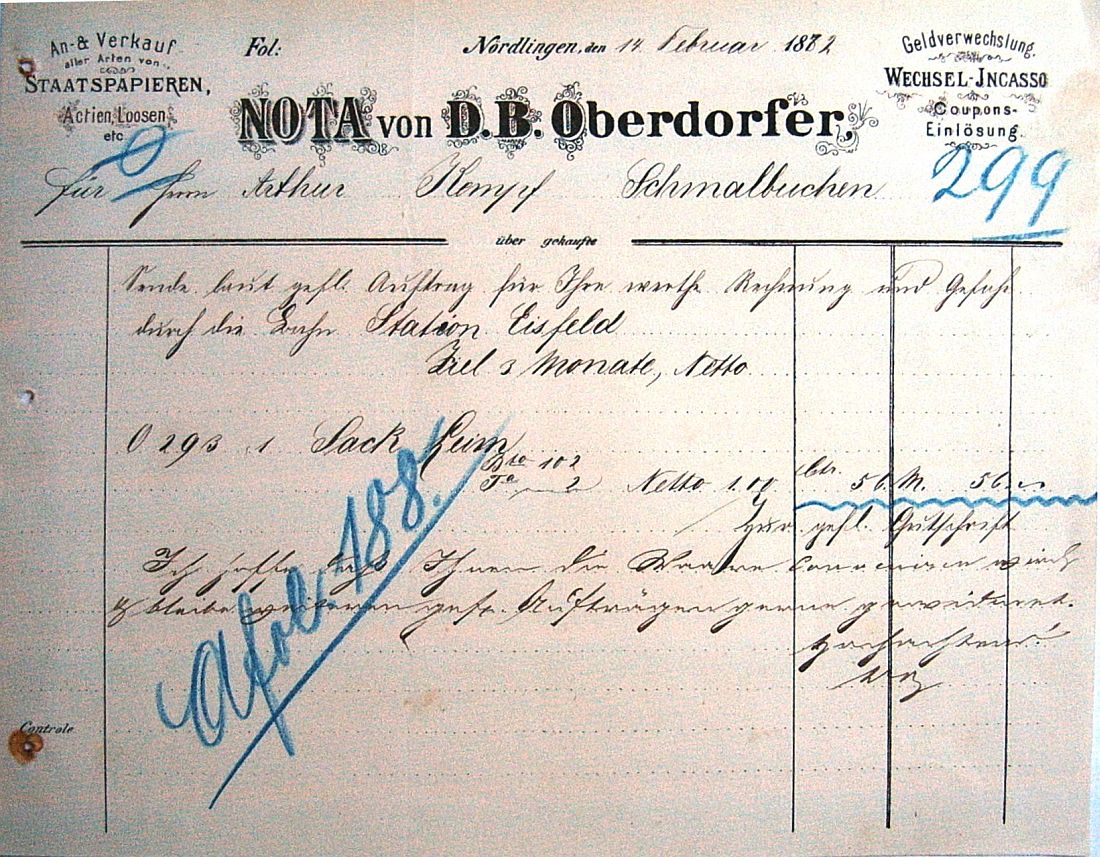 An- & Verkauf
aller Arten von
STAATSPAPIEREN,
Actien, Loosen
etc
Fol:
Nördlingen, den 14 Februar 1882
Geldverwechslung,
WECHSEL-JNCASSO
Coupons-
Einlösung.
NOTA von D.B. Oberdorfer,
für Herrn Arthur Kempf Schmalbuchen
299
über gekaufte
Sende laut gefl. Auftrag für Ihre werthe Rechnung und Gefahr
durch die Bahn Station Eisfeld
Ziel 3 Monate, Netto
O 293 1 Sack Leim
Bto 102
Ta 2 Netto 100 56. M. 56.
Zur gefl. Gutschrift
Ich hoffe daß Ihnen die Waare convenieren wird
& bleibe weiteren gefl. Aufträgen gerne gewidmet.
Hochachtend
188.
Controle